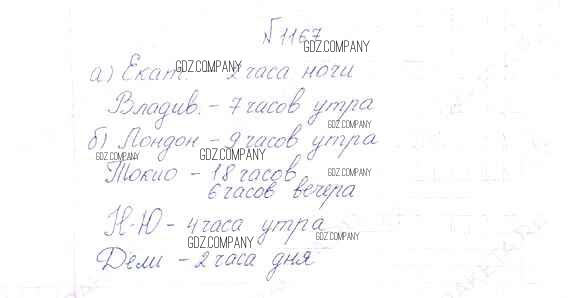 № 1167
GDZ.COMPANY
а) Екат. - 2 часа ночи
GDZ.COMPANY
Владив. - 7 часов утра
GDZ.COMPANY
б) Лондон - 9 часов утра
GDZ.COMPANY GDZ.COMPANY
Токио - 18 часов
GDZ.COMPANY
6 часов вечера
Н-Ю - 4 часа утра
GDZ.COMPANY GDZ.COMPANY
Дели - 2 часа дня